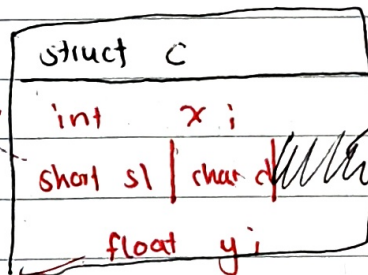 struct C
int x;
short s1 | char d
float y;